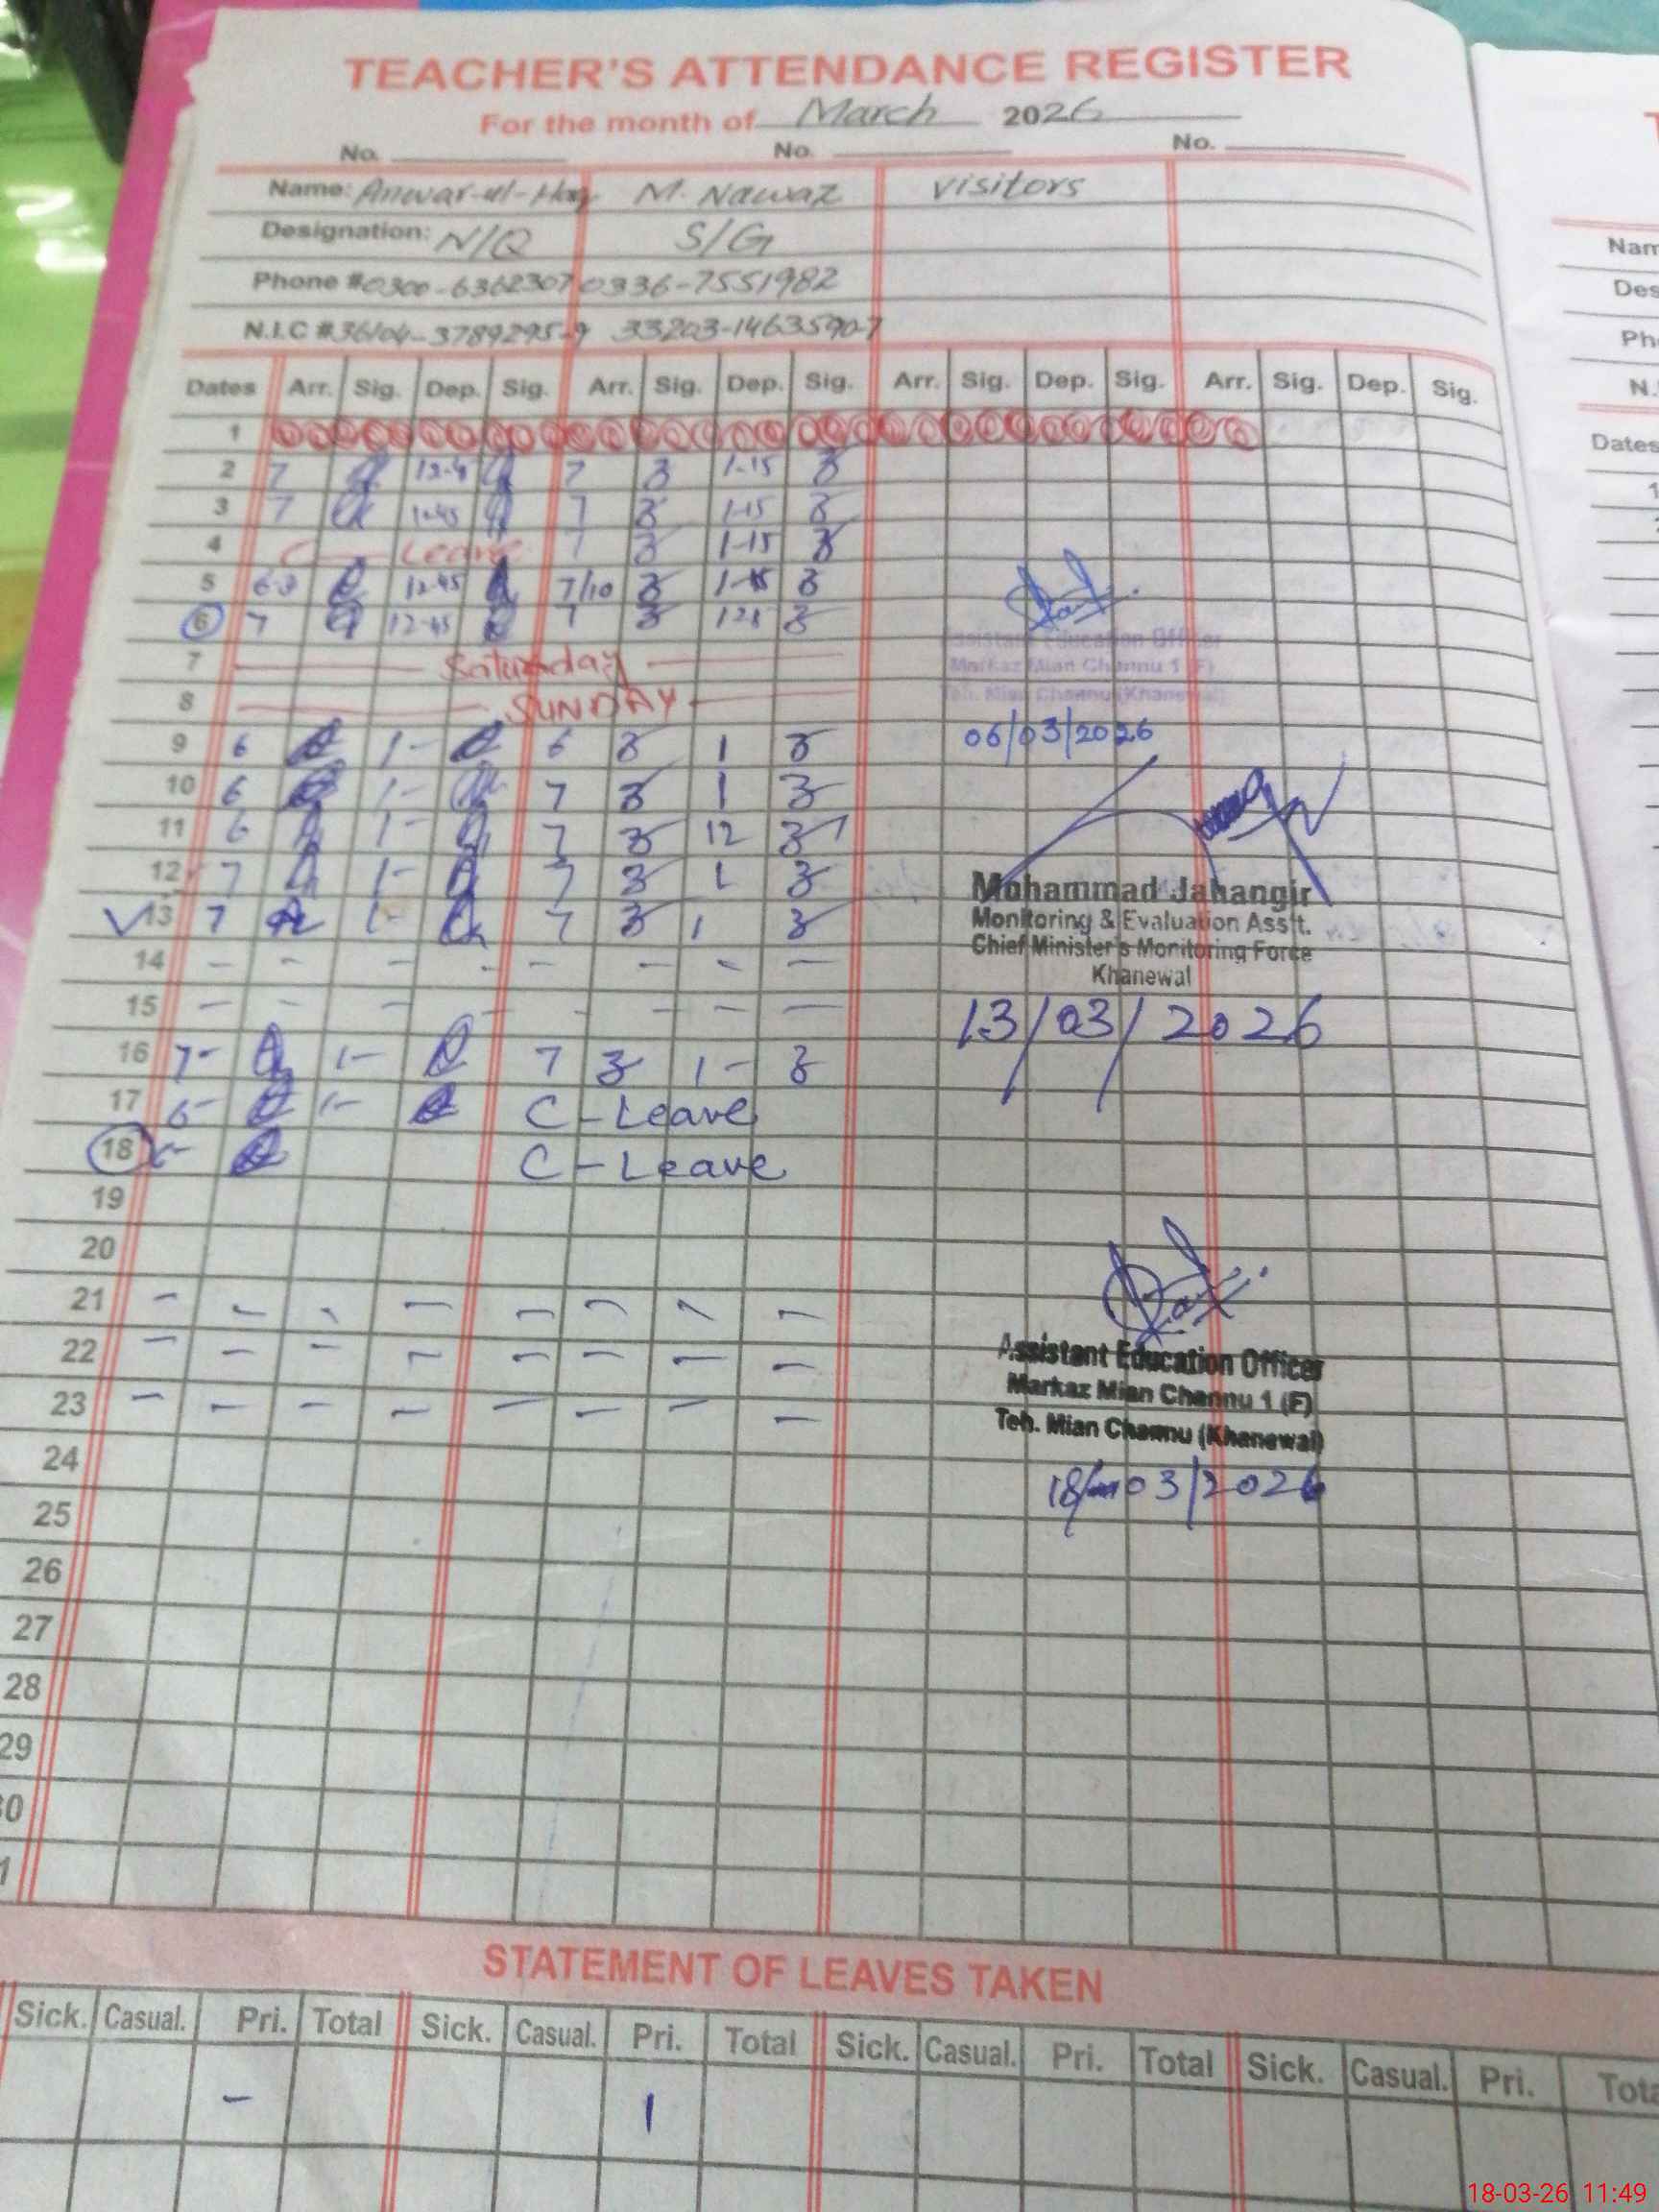 TEACHER'S ATTENDANCE REGISTER
For the month of March 2026
No. No. No.
Name: Anwar-ul-Haq M. Nawaz visitors
Designation: N/Q S/G
Phone #0300-6362307 0336-7551982
N.I.C #36104-3789295-9 33203-1463590-7
Dates Arr. Sig. Dep. Sig. Arr. Sig. Dep. Sig. Arr. Sig. Dep. Sig. Arr. Sig. Dep. Sig.
1
2 7 7 1-15
3 7 1-45 7 1-15
4 C Leave 7 1-15
5 12-45 7/10 1-15
6 7 12-45 7
Assistant Education Officer
7 Saturday Markaz Mian Channu 1 (F)
8 SUNDAY Teh. Mian Channu (Khanewal)
9 6 1- 6 1 06/03/2026
10 6 1- 7 1
11 6 1- 7 12
12 7 1- 7 1 Mohammad Jahangir
13 7 1- 7 1 Monitoring & Evaluation Ass't.
Chief Minister's Monitoring Force
14 - - - - - - - - Khanewal
15 - - - - - - - - 13/03/2026
16 7- 1- 7 1-
17 6- 1- C-Leave
18 C-Leave
19
20
21 - - - - - - - -
22 - - - - - - - - Assistant Education Officer
23 - - - - - - - - Markaz Mian Channu 1 (F)
Teh. Mian Channu (Khanewal)
24 18/03/2026
25
26
27
28
29
30
STATEMENT OF LEAVES TAKEN
Sick. Casual. Pri. Total Sick. Casual. Pri. Total Sick. Casual. Pri. Total Sick. Casual. Pri.
- 1
18-03-26 11:49